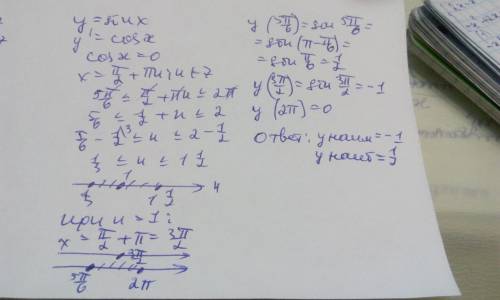 y = sin x
y' = cos x
cos x = 0
x = π/2 + πn; n ∈ Z
5π/6 ≤ π/2 + πn ≤ 2π
5/6 ≤ 1/2 + n ≤ 2
5/6 - 1/2^3 ≤ n ≤ 2 - 1/2
1/3 ≤ n ≤ 1 1/2
1/3 1 1 1/2 n
при n = 1:
x = π/2 + π = 3π/2
3π/2
5π/6 2π
y (5π/6) = sin 5π/6 =
= sin (π - π/6) =
= sin π/6 = 1/2
y (3π/2) = sin 3π/2 = -1
y (2π) = 0
Ответ: y наим = -1
y наиб = 1/2